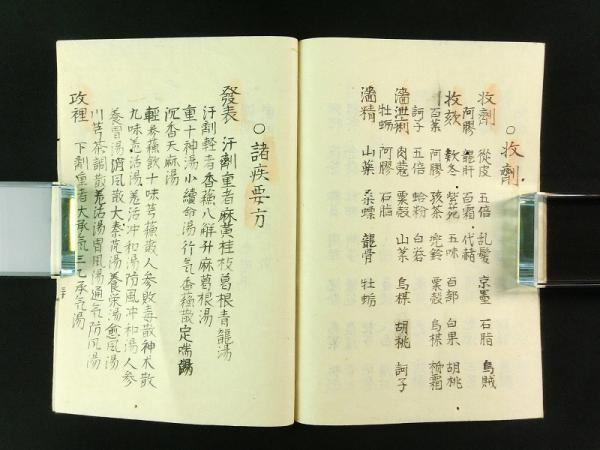 ○收劑
收劑 從皮 五倍 乱髮 京墨 石脂 烏賊
阿膠 龍肝 百霜 代赭
收欬 款冬 紫菀 五味 百部 白果 胡桃
百葉 阿膠 孩茶 兜鈴 粟殼 烏楳 楯霜
訶子 五倍 蛤粉 白岩
濇泄痢 肉蔻 粟殼 山茱 烏楳 胡桃 訶子
牡蛎 阿膠 石脂
濇精 山藥 桑螵 龍骨 牡蛎
○諸疾要方
發表 汗劑重者麻黃桂枝葛根青龍湯
汗劑輕者香蘓八鮮升麻葛根湯
重十神湯小續命湯行气香蘓散定喘湯
沉香天麻湯
輕参蘓飲十味芎蘓散人参敗毒散神术散
九味羌活湯羌活冲和湯防風冲和湯人参
養胃湯消風散大秦艽湯養栄湯愈風湯
川芎茶調散羌活湯胃風湯通气防風湯
攻裡 下劑重者大承气三乙承气湯